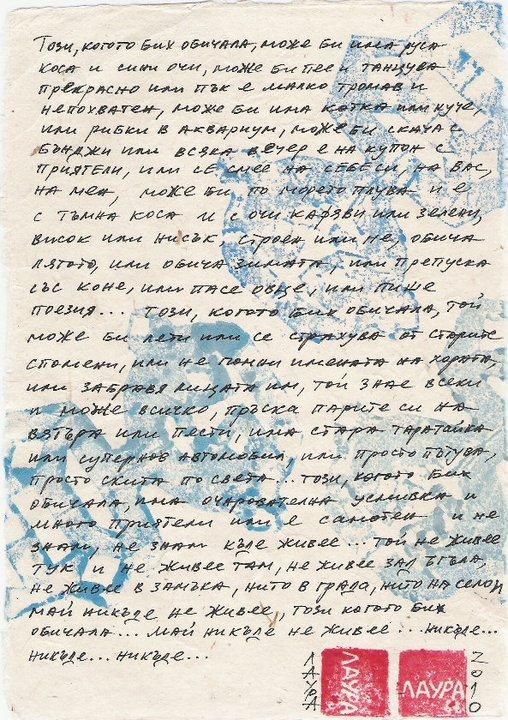 Този, когото бих обичала, може би има руса
коса и сини очи, може би пее и танцува
прекрасно или пък е малко тромав и
непохватен, може би има котка или куче,
или рибки в аквариум, може би скача с
бънджи или всяка вечер е на купон с
приятели, или се смее на себеси, на вас,
на мен, може би по морето плува и е
с тъмна коса и с очи кафяви или зелени,
висок или нисък, строен или не, обича
лятото, или обича зимата, или препуска
със коне, или пасе овце, или пише
поезия... този, когото бих обичала, той
може би лети или се страхува от старите
спомени, или не помни имената на хората,
или забравя лицата им, той знае всеки
и може всичко, пръска парите си на
вятъра или пести, има стара таратайка
или супернов автомобил, или просто пътува,
просто скита по света... този, когото бих
обичала, има очарователна усмивка и
много приятели или е самотен и не
знам, не знам къде живее... той не живее
тук и не живее там, не живее зад ъгъла,
не живее в замъка, нито в града, нито на село и
май никъде не живее, този когото бих
обичала... май никъде не живее... никъде...
никъде... никъде...
ЛАУРА
ЛАУРА
ЛАУРА
2010